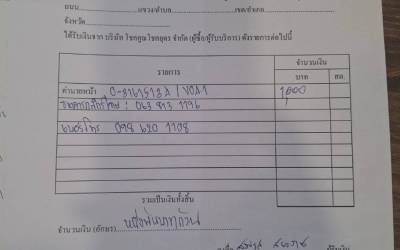 ถนน........................แขวง/ตำบล........................เขต/อำเภอ
จังหวัด
ได้รับเงินจาก บริษัท โชคคูณโชคยนตร จำกัด (ผู้ซื้อ/ผู้รับบริการ) ดังรายการต่อไปนี้
รายการ จำนวนเงิน
บาท สต.
ค่านายหน้า 0-3161513A / V0A1 1,000
ธนาคารกสิกรไทย : 063 813 1196
เบอร์โทร 098 620 1108
รวมเป็นเงินทั้งสิ้น
จำนวนเงิน (อักษร) หนึ่งพันบาทถ้วน